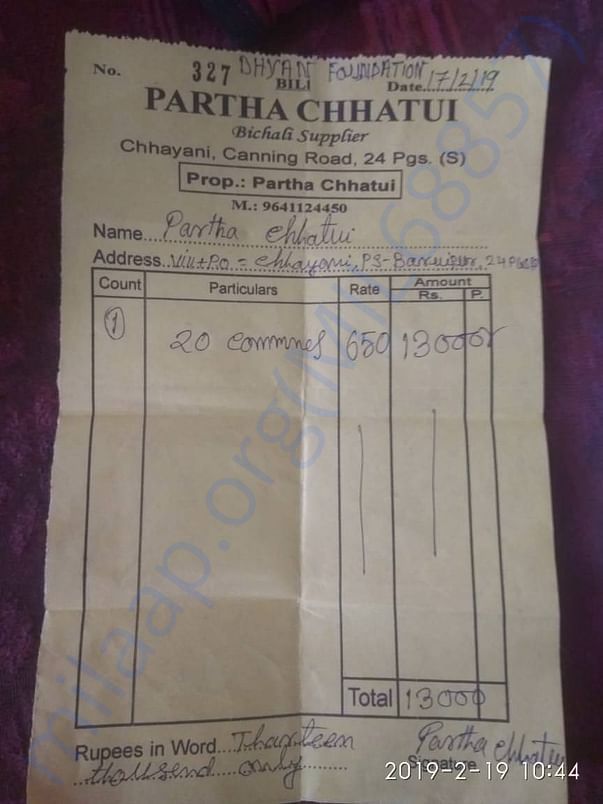 No. 327 DHYAN FOUNDATION
BILL Date 17/2/19
PARTHA CHHATUI
Bichali Supplier
Chhayani, Canning Road, 24 Pgs. (S)
Prop.: Partha Chhatui
M.: 9641124450
Name Partha Chhatui
Address Vill+P.O = Chhayani, PS-Baruipur, 24 PGS
Count Particulars Rate Amount
Rs. P.
1 20 650 13000
Total 13000
Rupees in Word Tharteen
thousend only
Partha Chhatui
Signature
2019-2-19 10:44
milaap.org